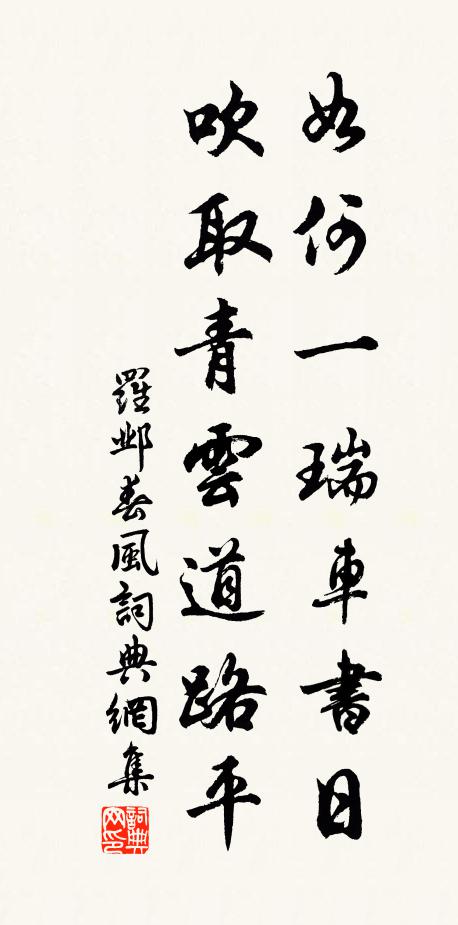 如何一瑞車書日
吹取青雲道路平
羅鄴春風詞典網集
詞典
网印